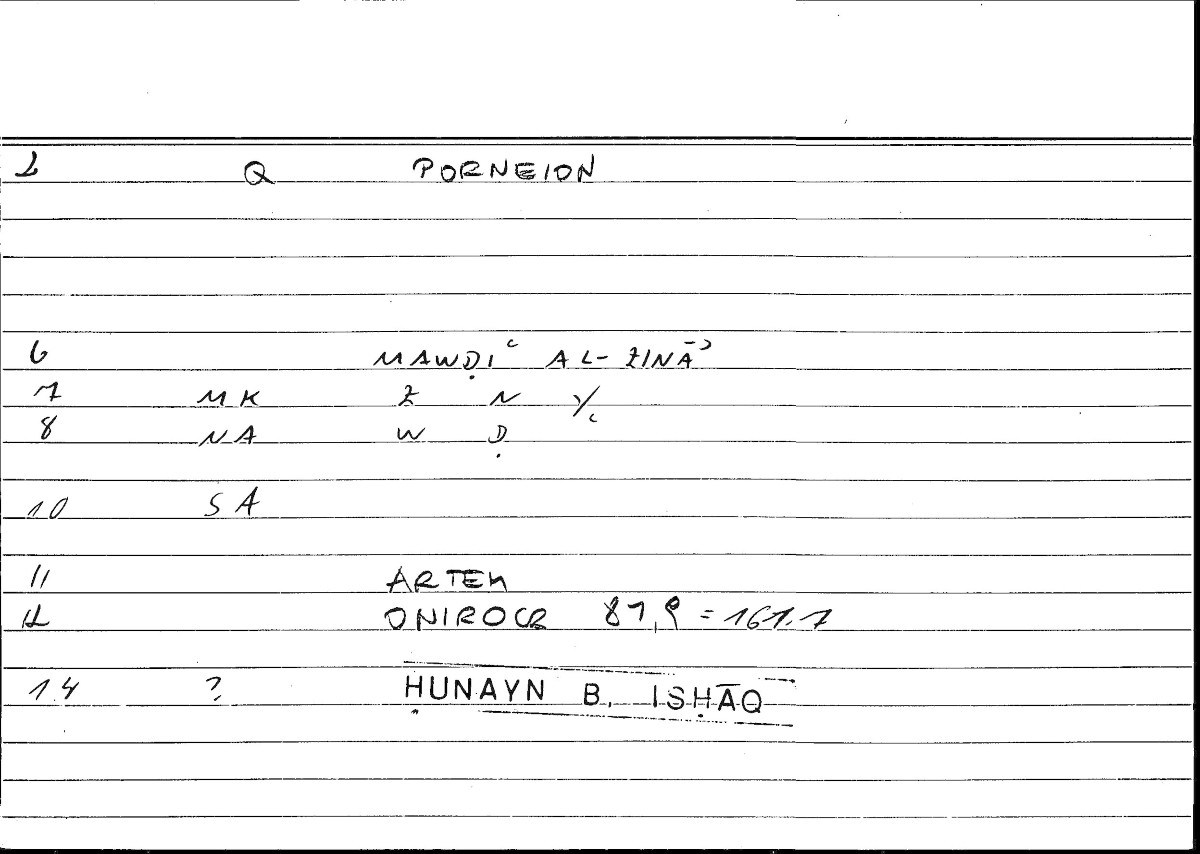 1 Q PORNEION
6 MAWḌIʿ AL-ZINĀʾ
7 MK Z N Y/
8 NA W Ḍ
10 SA
11 ARTEM
12 ONIROCR 87,9 = 161.7
14 ? ḤUNAYN B. ISḤĀQ